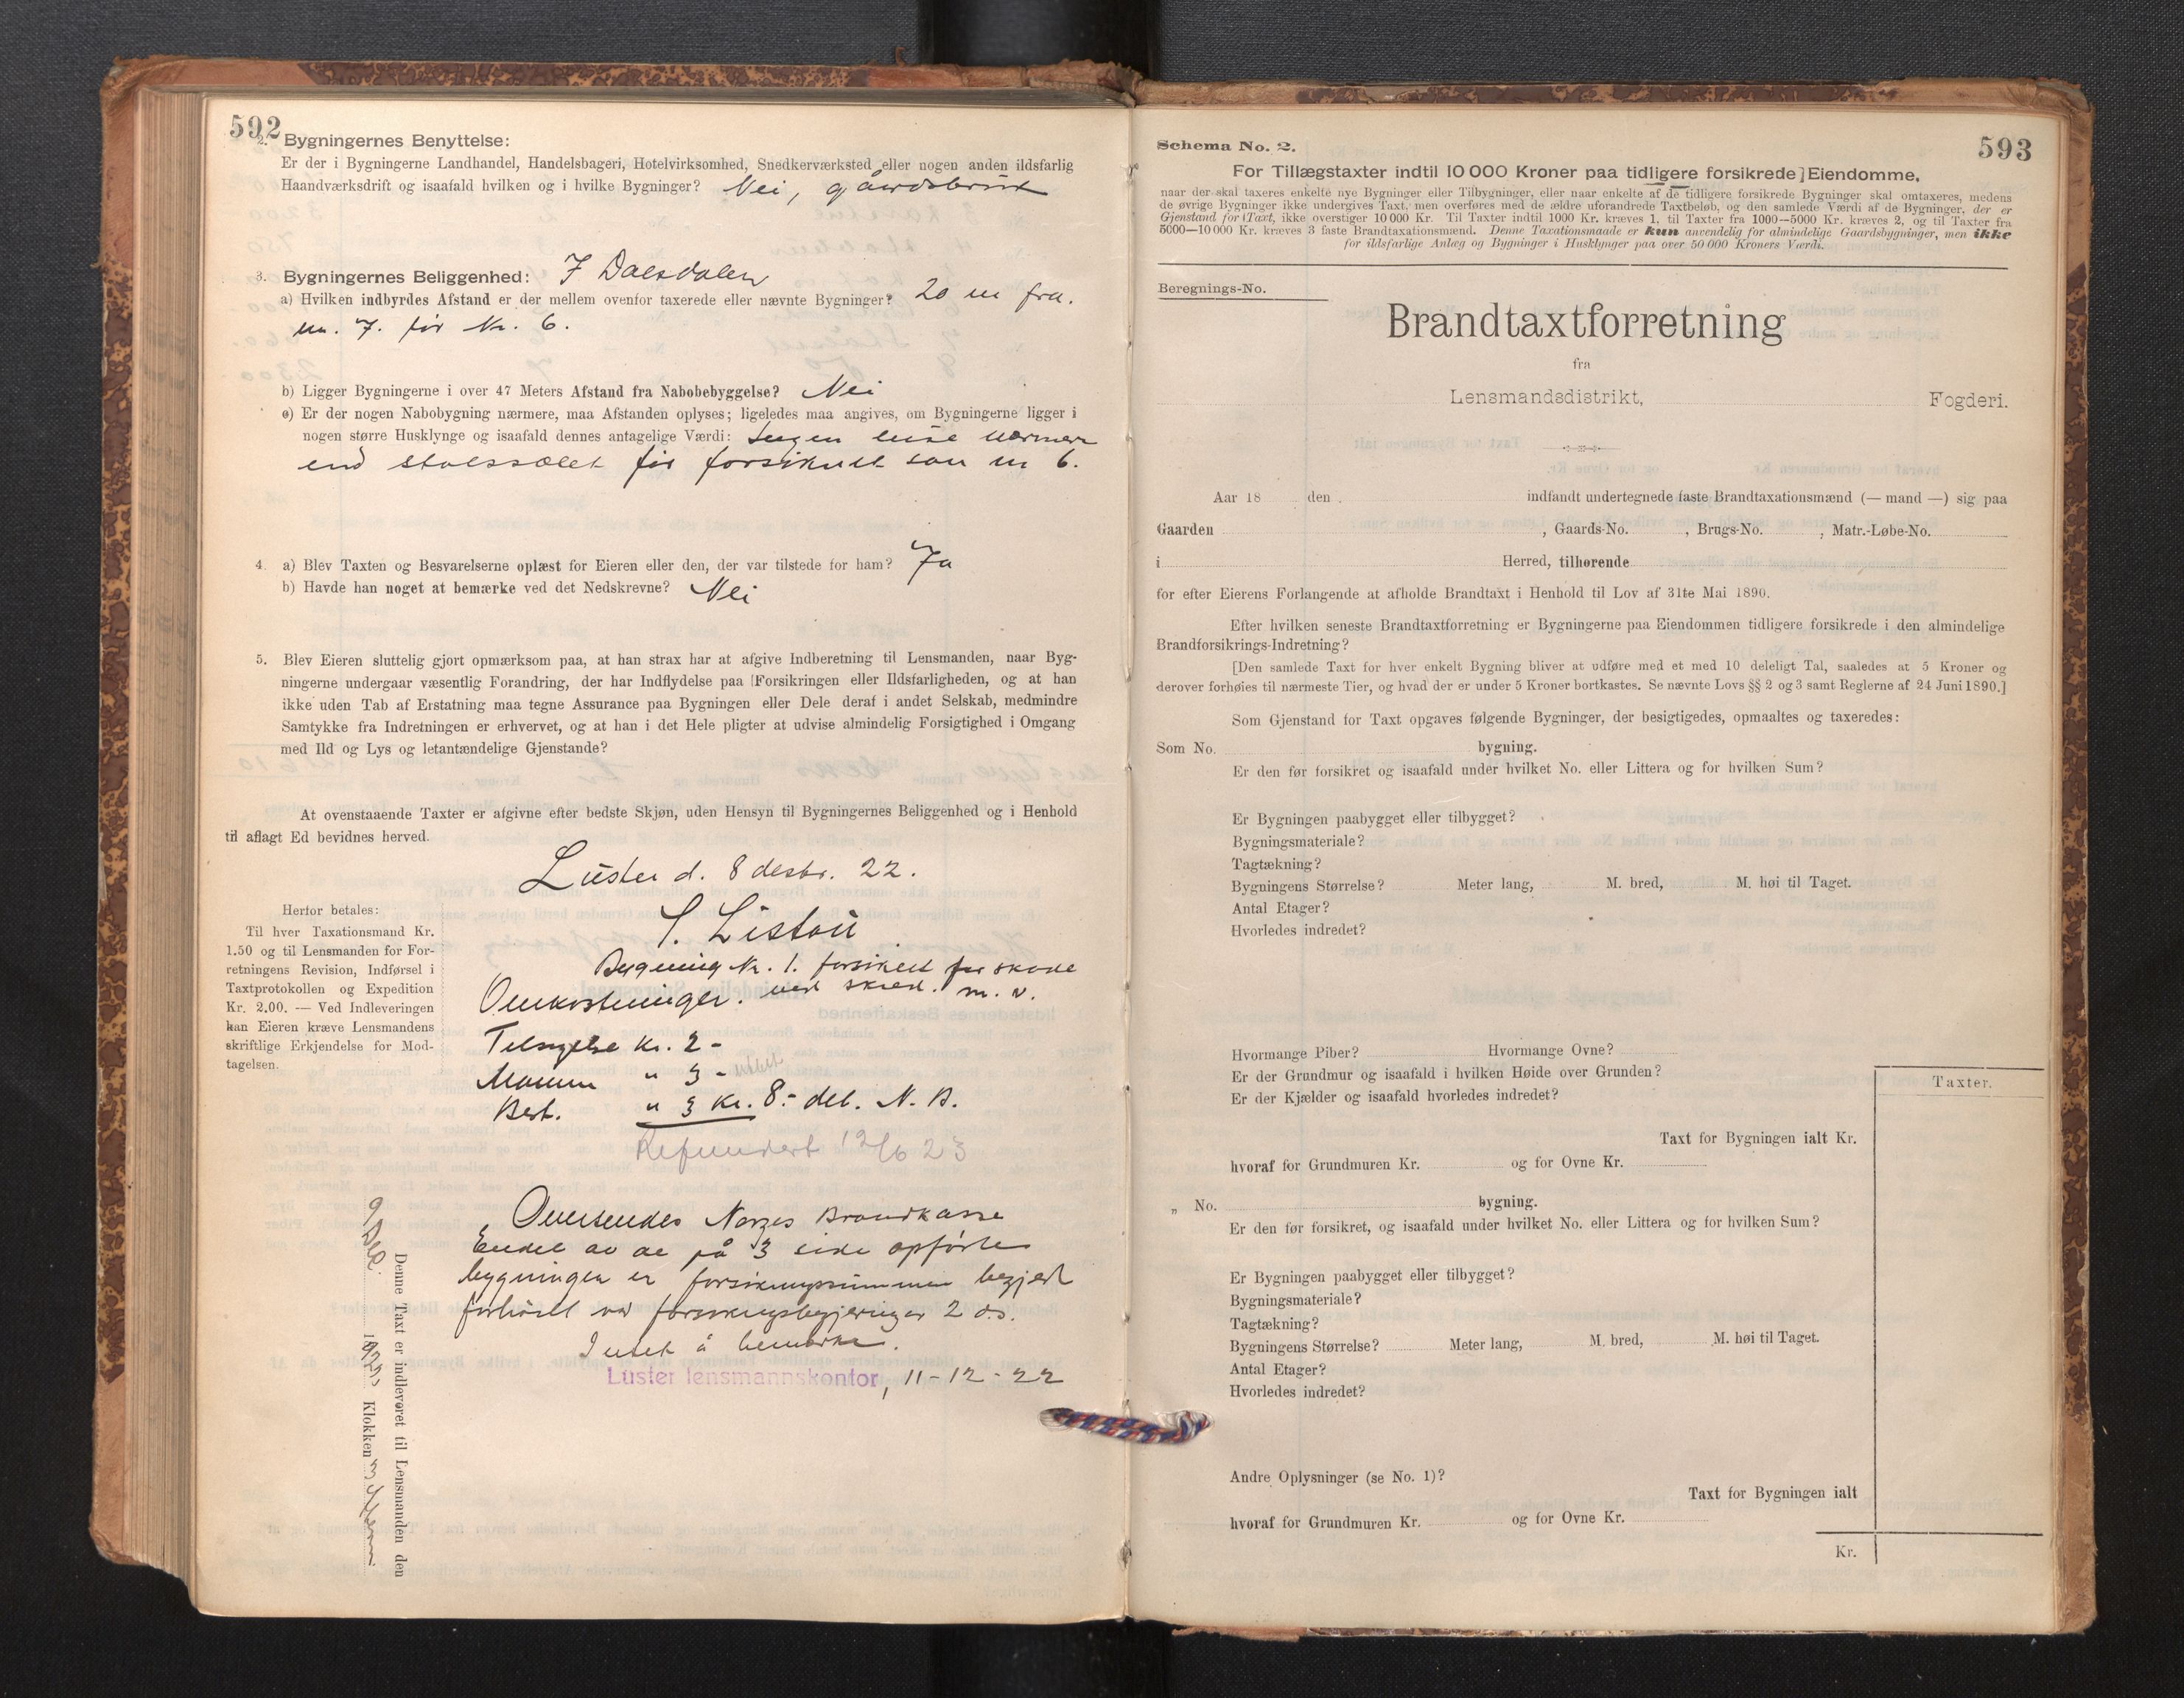 592
2. Bygningernes Benyttelse:
Er der i Bygningerne Landhandel, Handelsbageri, Hotelvirksomhed, Snedkerværksted eller nogen anden ildsfarlig
Haandværksdrift og isaafald hvilken og i hvilke Bygninger? Nei, gårdsbruk
3. Bygningernes Beliggenhed: I Dalsdalen
a) Hvilken indbyrdes Afstand er der mellem ovenfor taxerede eller nævnte Bygninger? 20 m fra.
nr. 7. før Nr. 6.
b) Ligger Bygningerne i over 47 Meters Afstand fra Nabobebyggelse? Nei
c) Er der nogen Nabobygning nærmere, maa Afstanden oplyses; ligeledes maa angives, om Bygningerne ligger i
nogen større Husklynge og isaafald dennes antagelige Værdi: Ingen nærmere
end før forsikret som nr 6.
4. a) Blev Taxten og Besvarelserne oplæst for Eieren eller den, der var tilstede for ham? Ja
b) Havde han noget at bemærke ved det Nedskrevne? Nei
5. Blev Eieren sluttelig gjort opmærksom paa, at han strax har at afgive Indberetning til Lensmanden, naar Byg-
ningerne undergaar væsentlig Forandring, der har Indflydelse paa Forsikringen eller Ildsfarligheden, og at han
ikke uden Tab af Erstatning maa tegne Assurance paa Bygningen eller Dele deraf i andet Selskab, medmindre
Samtykke fra Indretningen er erhvervet, og at han i det Hele pligter at udvise almindelig Forsigtighed i Omgang
med Ild og Lys og letantændelige Gjenstande?
At ovenstaaende Taxter er afgivne efter bedste Skjøn, uden Hensyn til Bygningernes Beliggenhed og i Henhold
til aflagt Ed bevidnes herved.
Luster d. 8 desbr. 22.
Herfor betales:
Til hver Taxationsmand Kr.
1.50 og til Lensmanden for For-
retningens Revision, Indførsel i
Taxtprotokollen og Expedition
Kr. 2.00. — Ved Indleveringen
kan Eieren kræve Lensmandens
skriftlige Erkjendelse for Mod-
tagelsen.
Bygning Nr. 1. forsikret for skade
ved skred. m. v.
Omkostninger.
Kr. 2 -
" 3 -
" 3 Kr. 8.- N. B.
Refundert 12/6 23
Oversendes Norges Brandkasse
Endel av de på 3 side opførte
bygningen er forsikringssummen begjært
forhøiet ved forsikringsbegjæringer 2 ds.
Intet å bemerke.
Luster lensmannskontor, 11-12-22
Denne Taxt er indleveret til Lensmanden den
9 Dec. 1922 Klokken 3
593
Schema No. 2.
For Tillægstaxter indtil 10 000 Kroner paa tidligere forsikrede] Eiendomme,
naar der skal taxeres enkelte nye Bygninger eller Tilbygninger, eller naar enkelte af de tidligere forsikrede Bygninger skal omtaxeres, medens
de øvrige Bygninger ikke undergives Taxt, men overføres med de ældre uforandrede Taxtbeløb, og den samlede Værdi af de Bygninger, der er
Gjenstand for Taxt, ikke overstiger 10 000 Kr. Til Taxter indtil 1000 Kr. kræves 1, til Taxter fra 1000—5000 Kr. kræves 2, og til Taxter fra
5000—10 000 Kr. kræves 3 faste Brandtaxationsmænd. Denne Taxationsmaade er kun anvendelig for almindelige Gaardsbygninger, men ikke
for ildsfarlige Anlæg og Bygninger i Husklynger paa over 50 000 Kroners Værdi.
Beregnings-No.
Brandtaxtforretning
fra
Lensmandsdistrikt, Fogderi.
Aar 18 den indfandt undertegnede faste Brandtaxationsmænd (— mand —) sig paa
Gaarden , Gaards-No. , Brugs-No. , Matr.-Løbe-No.
i Herred, tilhørende
for efter Eierens Forlangende at afholde Brandtaxt i Henhold til Lov af 31te Mai 1890.
Efter hvilken seneste Brandtaxtforretning er Bygningerne paa Eiendommen tidligere forsikrede i den almindelige
Brandforsikrings-Indretning?
[Den samlede Taxt for hver enkelt Bygning bliver at udføre med et med 10 deleligt Tal, saaledes at 5 Kroner og
derover forhøies til nærmeste Tier, og hvad der er under 5 Kroner bortkastes. Se nævnte Lovs §§ 2 og 3 samt Reglerne af 24 Juni 1890.]
Som Gjenstand for Taxt opgaves følgende Bygninger, der besigtigedes, opmaaltes og taxeredes:
Som No. bygning.
Er den før forsikret og isaafald under hvilket No. eller Littera og for hvilken Sum?
Er Bygningen paabygget eller tilbygget?
Bygningsmateriale?
Tagtækning?
Bygningens Størrelse? Meter lang, M. bred, M. høi til Taget.
Antal Etager?
Hvorledes indredet?
Hvormange Piber? Hvormange Ovne?
Er der Grundmur og isaafald i hvilken Høide over Grunden?
Er der Kjælder og isaafald hvorledes indredet?
Taxter.
Taxt for Bygningen ialt Kr.
hvoraf for Grundmuren Kr. og for Ovne Kr.
„ No. bygning.
Er den før forsikret, og isaafald under hvilket No. eller Littera og for hvilken Sum?
Er Bygningen paabygget eller tilbygget?
Bygningsmateriale?
Tagtækning?
Bygningens Størrelse? Meter lang, M. bred, M. høi til Taget.
Antal Etager?
Hvorledes indredet?
Andre Oplysninger (se No. 1)?
Taxt for Bygningen ialt
hvoraf for Grundmuren Kr. og for Ovne Kr.
Kr.